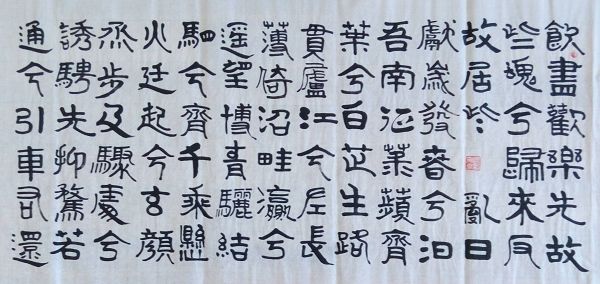 飲盡歡樂先故
些魂兮歸來反
故居些 亂曰
獻歲發春兮汩
吾南征菉蘋齊
葉兮白芷生路
貫廬江兮左長
薄倚沼畦瀛兮
遥望博青驪結
駟兮齊千乘懸
火延起兮玄顏
烝步及驟處兮
誘騁先抑騖若
通兮引車右還